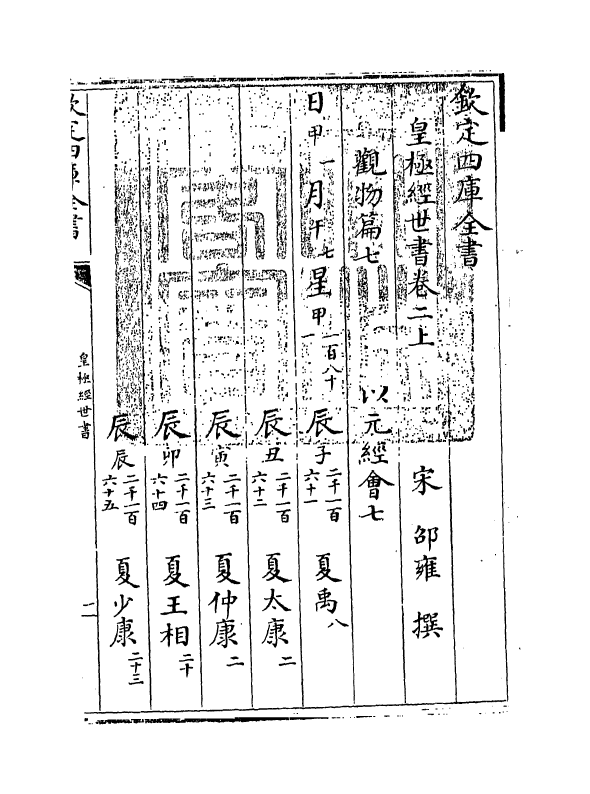 欽定四庫全書
皇極經世書卷二上
宋 邵雍 撰
觀物篇七 以元經會七
日甲一月午七星甲一百八十一 辰子二千一百六十一 夏禹八
辰丑二千一百六十二 夏太康二
辰寅二千一百六十三 夏仲康二
辰卯二千一百六十四 夏王相二十
辰辰二千一百六十五 夏少康二十三
欽定四庫全書
皇極經世書
二